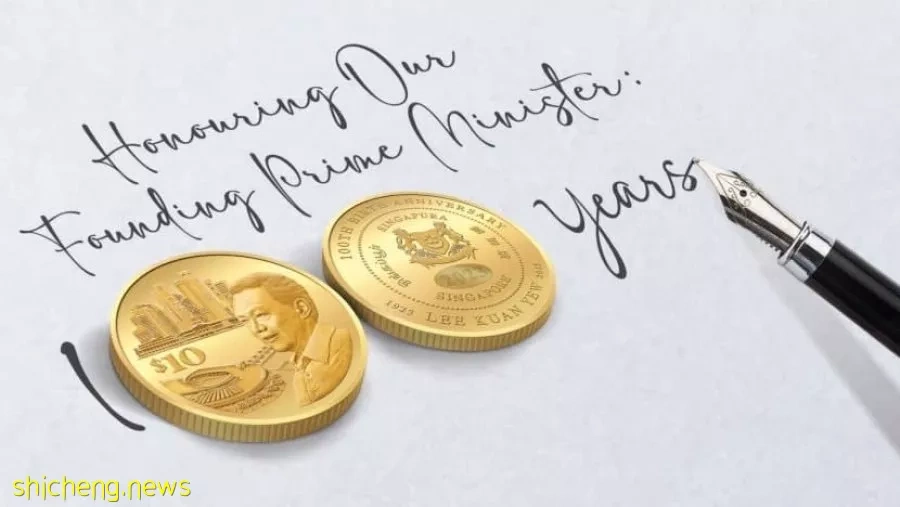 Honouring Our
Founding Prime Minister:
1 Years
$10
100TH BIRTH ANNIVERSARY
SINGAPURA
SINGAPORE
1923 LEE KUAN YEW 2023
shicheng.news